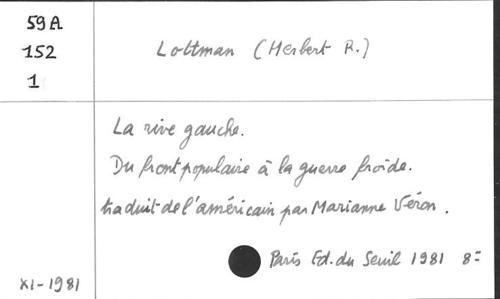 59A
152
1
Lottman (Herbert R.)
La rive gauche.
Du front populaire à la guerre froide.
traduit de l'américain par Marianne Véron.
Paris Ed. du Seuil 1981 8=
XI-1981